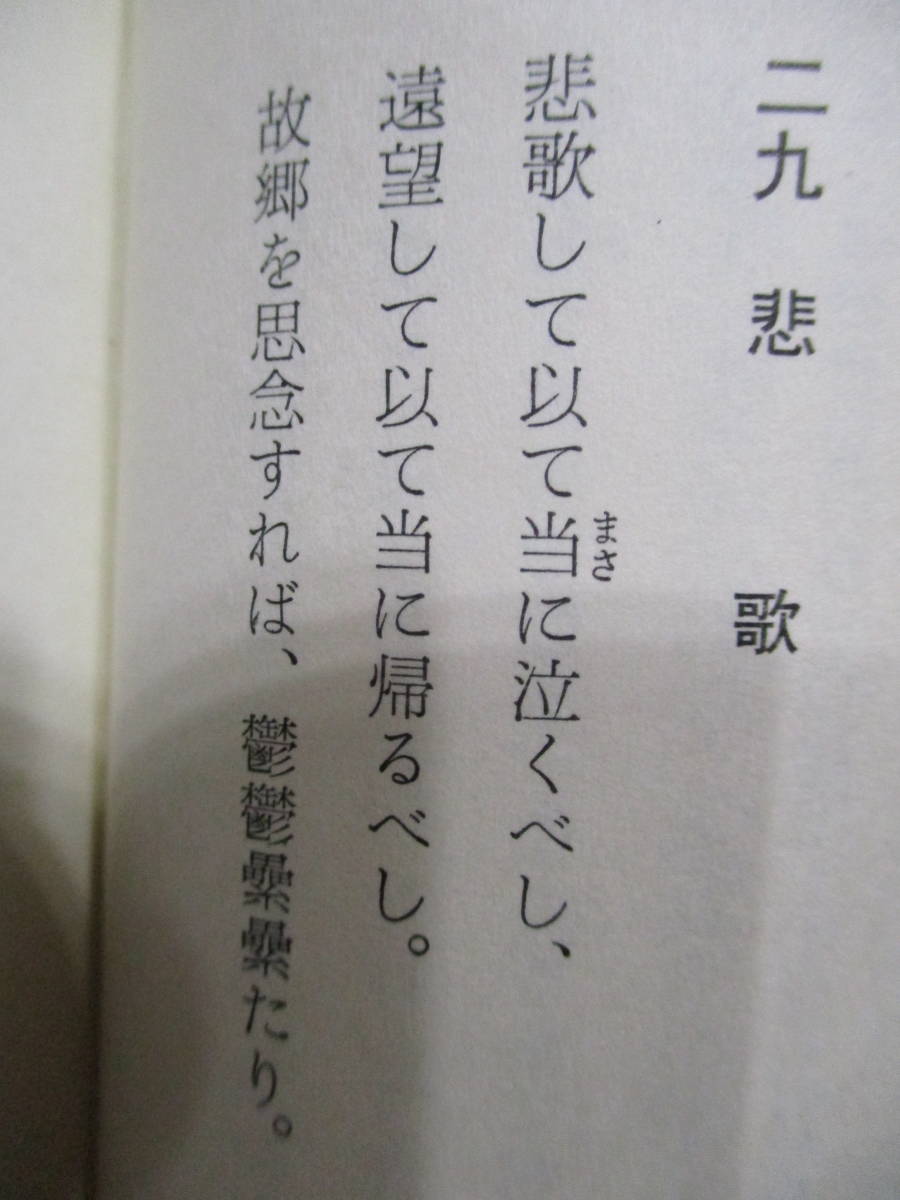 二九 悲歌
悲歌して以て当に泣くべし、
まさ
遠望して以て当に帰るべし。
故郷を思念すれば、鬱鬱纍纍たり。